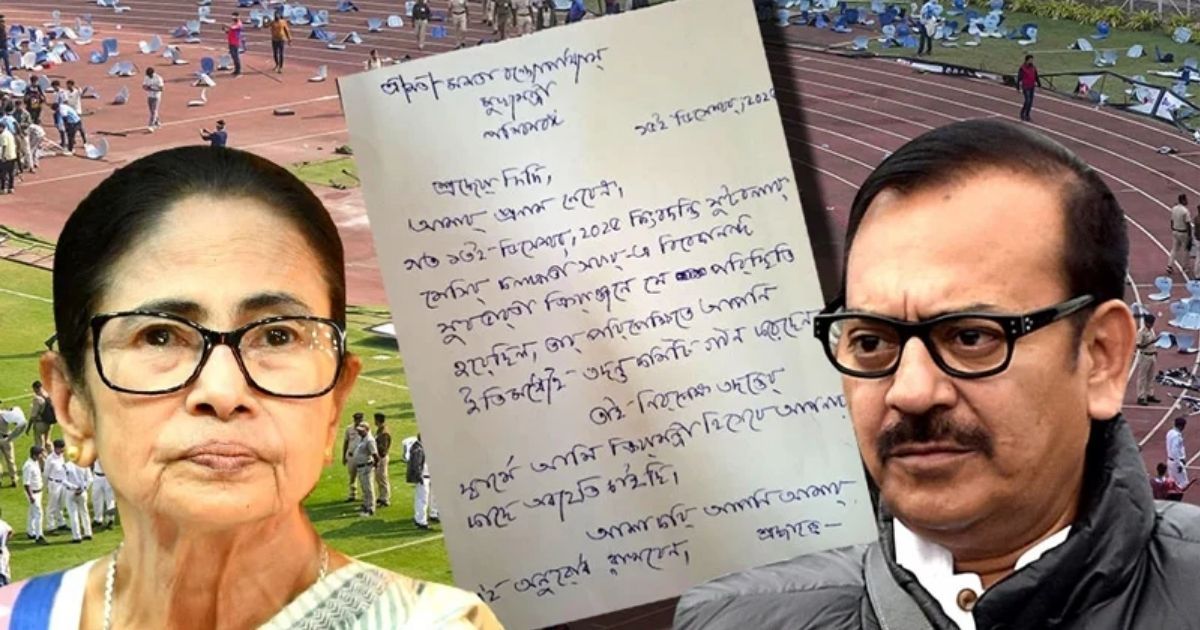 শ্রীমতী মমতা বন্দ্যোপাধ্যায়
মুখ্যমন্ত্রী
পশ্চিমবঙ্গ
ডিসেম্বর, ২০২৫
শ্রদ্ধেয় দিদি,
আমার প্রণাম নেবেন,
গত ১৩ই ডিসেম্বর, ২০২৫ কিংবদন্তি ফুটবলার
মেসির কলকাতা সফর-এ বিবেকানন্দ
যুবভারতী ক্রীড়াঙ্গনে যে পরিস্থিতি
হয়েছিল, তার পরিপ্রেক্ষিতে আপনি
ইতিমধ্যেই তদন্ত কমিটি গঠন করেছেন
তাই নিরপেক্ষ তদন্তের
স্বার্থে আমি ক্রীড়ামন্ত্রী হিসেবে আপনার
অব্যাহতি চাইছি।
আশা করি আপনি আমার
অনুরোধ রাখবেন,